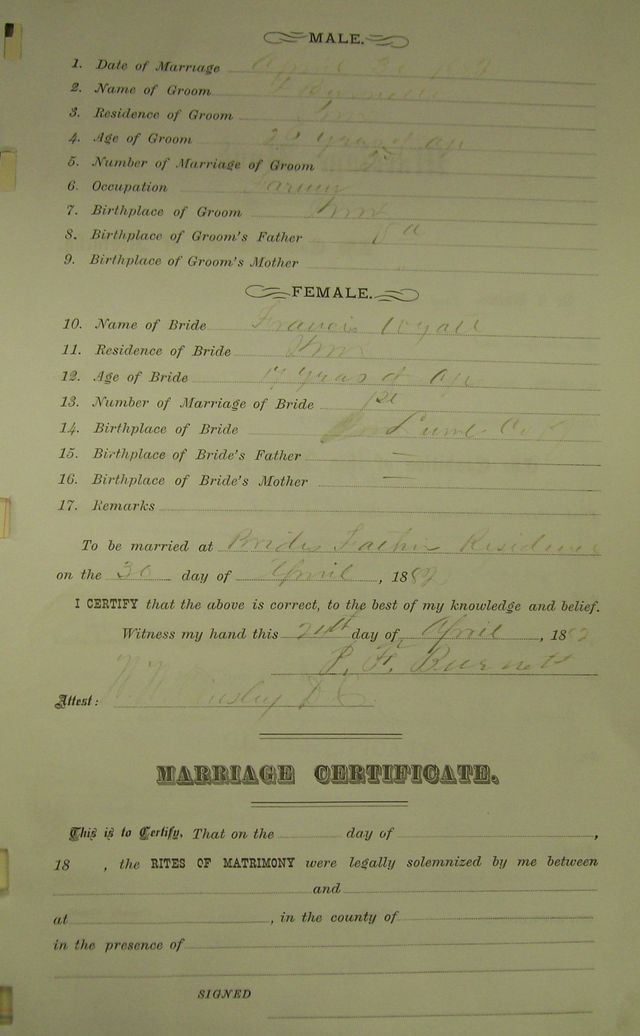 MALE.
1. Date of Marriage April 30 188
2. Name of Groom
3. Residence of Groom
4. Age of Groom 26 years of age
5. Number of Marriage of Groom
6. Occupation Farmer
7. Birthplace of Groom
8. Birthplace of Groom's Father Va
9. Birthplace of Groom's Mother
FEMALE.
10. Name of Bride Francis Wyatt
11. Residence of Bride
12. Age of Bride 17 years of age
13. Number of Marriage of Bride 1st
14. Birthplace of Bride
15. Birthplace of Bride's Father —
16. Birthplace of Bride's Mother —
17. Remarks
To be married at Brides Father Residence
on the 30 day of April, 1882
I CERTIFY that the above is correct, to the best of my knowledge and belief.
Witness my hand this 24th day of April, 1882
P. F. Burnett
Attest: D C
MARRIAGE CERTIFICATE.
This is to Certify, That on the day of ,
18 , the RITES OF MATRIMONY were legally solemnized by me between
and
at , in the county of
in the presence of
SIGNED